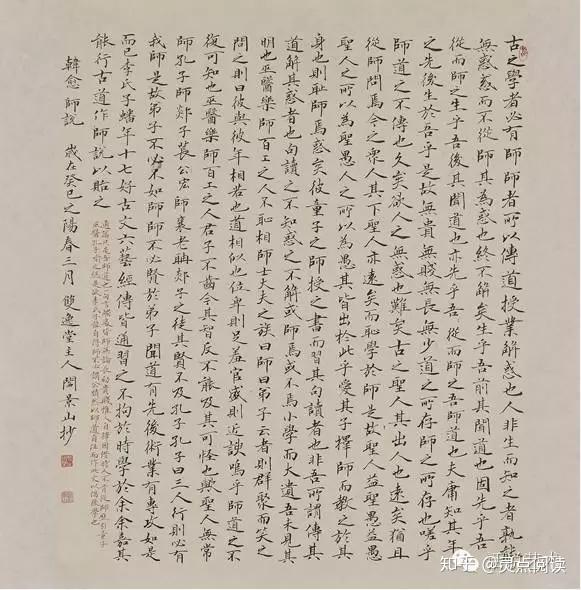 古之學者必有師師者所以傳道授業解惑也人非生而知之者孰能
無惑惑而不從師其為惑也終不解矣生乎吾前其聞道也固先乎吾
從而師之生乎吾後其聞道也亦先乎吾從而師之吾師道也夫庸知其年
之先後生於吾乎是故無貴無賤無長無少道之所存師之所存也嗟乎
師道之不傳也久矣欲人之無惑也難矣古之聖人其出人也遠矣猶且
從師問焉今之眾人其下聖人亦遠矣而恥學於師是故聖人益聖愚益愚
聖人之所以為聖愚人之所以為愚其皆出於此乎愛其子擇師而教之於其
身也則恥師焉惑矣彼童子之師授之書而習其句讀者也非吾所謂傳其
道解其惑者也句讀之不知惑之不解或師焉或不焉小學而大遺吾未見其
明也巫醫樂師百工之人不恥相師士大夫之族曰師曰弟子云者則群聚而笑之
問之則曰彼與彼年相若也道相似也位卑則足羞官盛則近諛嗚乎師道之不
復可知也巫醫樂師百工之人君子不齒今其智反不能及其可怪也歟聖人無常
師孔子師郯子萇弘師襄老聃郯子之徒其賢不及孔子孔子曰三人行則必有
我師是故弟子不必不如師師不必賢於弟子聞道有先後術業有專攻如是
而已李氏子蟠年十七好古文六藝經傳皆通習之不拘於時學於余余嘉其
能行古道作師說以貽之
韓愈師說 歲在癸巳之陽春三月 逸堂主人 閆景山抄
知乎 @灵点阅读